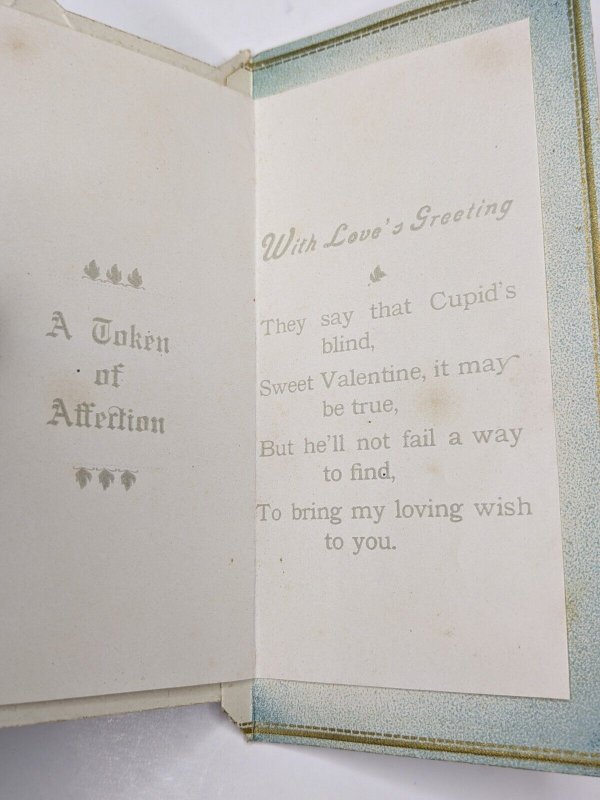 A Token
of
Affection
With Love's Greeting
They say that Cupid's
blind,
Sweet Valentine, it may
be true,
But he'll not fail a way
to find,
To bring my loving wish
to you.